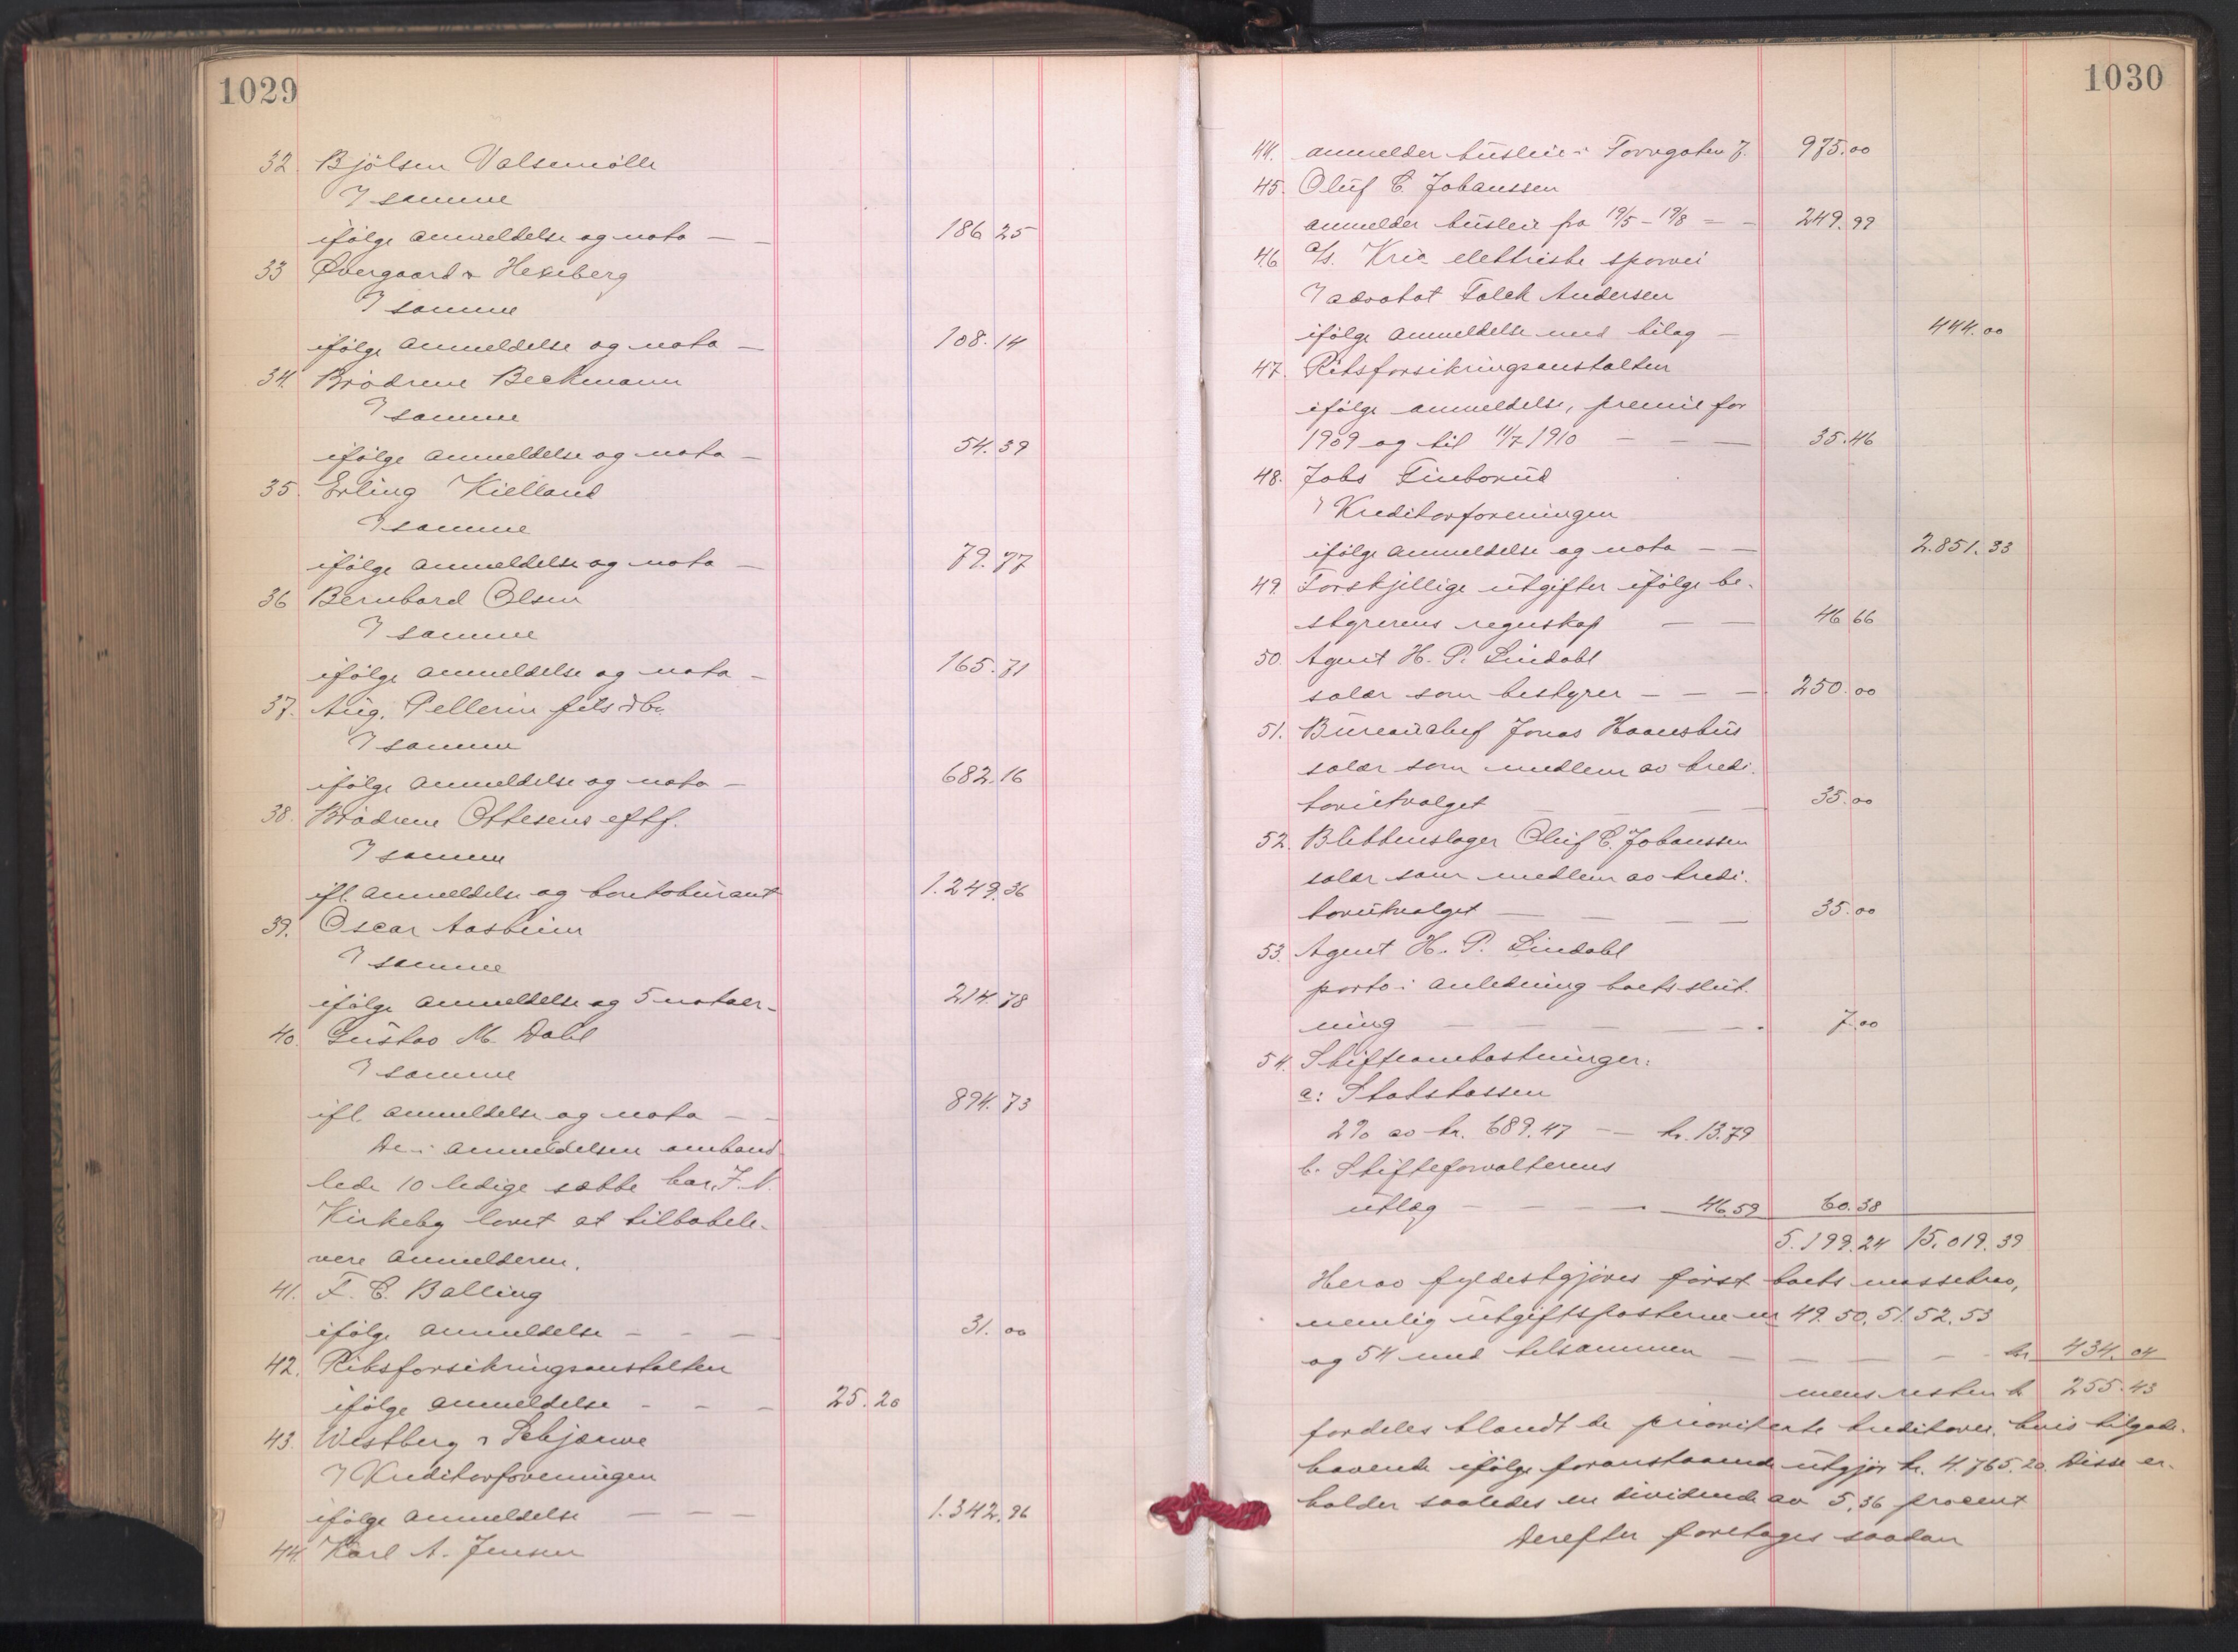 1029
32. Bjölsen Valsemölle
7 samme
ifølge anmeldelse og nota — — 186 25
33 Overgaard & Hexeberg
7 samme
ifølge anmeldelse og nota — 108.14
34. Brødrene Beckmann
7 samme
ifølge anmeldelse og nota — 54.39
35. Erling Kielland
7 samme
ifølge anmeldelse og nota — 79.77
36 Bernhard Olsen
7 samme
ifølge anmeldelse og nota — 165.71
37. Aug. Pellerin fils & Co.
7 samme
ifølge anmeldelse og nota — 682.16
38. Brødrene Ottesens eftf.
7 samme
ifl. anmeldelse og kontokurant 1.249.36
39. Oscar Aasheim
7 samme
ifølge anmeldelse og 5 notaer — 214.78
40. Gustav M. Dahl
7 samme
ifl. anmeldelse og nota — — 894.73
De i anmeldelsen omhand
lede 10 ledige sække har J. N.
Kirkeby lovet at tilbakele-
vere anmelderen.
41. F. C. Balling
ifølge anmeldelse — — — 31.00
42. Riksforsikringsanstalten
ifølge anmeldelse — — — 25.20
43. Westberg & Schjærve
7 Kreditorforeningen
ifølge anmeldelse — — — 1.342.96
44. Karl A. Jensen
1030
44. anmelder husleie i Torvgaten 7. 975.00
45. Oluf C. Johanssen
anmelder husleie fra 19/5 – 19/8 — — 249.99
46 A/s. Kria elektriske sporvei
7 advokat Falck Andersen
ifølge anmeldelse med bilag — 444.00
47. Riksforsikringsanstalten
ifølge anmeldelse, premie for
1909 og til 11/7 1910 — — — 35.46
48. Johs Finborud
7 Kreditorforeningen
ifølge anmeldelse og nota — — 2.851.33
49. Forskjellige utgifter ifølge be-
styrerens regnskap — — 46 66
50. Agent H. P. Lindahl
salær som bestyrer — — — 250.00
51. Bureauchef Jonas Haanshus
salær som medlem av kredi-
torutvalget — — — 35.00
52. Blikkenslager Oluf C. Johanssen
salær som medlem av kredi-
torutvalget — — — 35.00
53. Agent H. P. Lindahl
porto i anledning boets slut-
ning — — — — 7.00
54. Skifteomkostninger:
a: Statskassen
2% av kr. 689.47 — — kr. 13.79
b. Skifteforvalterens
utlæg — — — — 46.59 60.38
5.199.24 15.019.39
Herav fyldestgjøres først boets massekrav,
nemlig utgiftsposterne nr 49. 50. 51. 52. 53
og 54 med tilsammen — — — — kr 434.04
mens resten kr 255.43
fordeles blandt de prioriterte kreditorer, hvis tilgode-
havende ifølge foranstaaende utgjør kr. 4.765.20. Disse er-
holder saaledes en dividende av 5,36 procent
Derefter foretages saadan